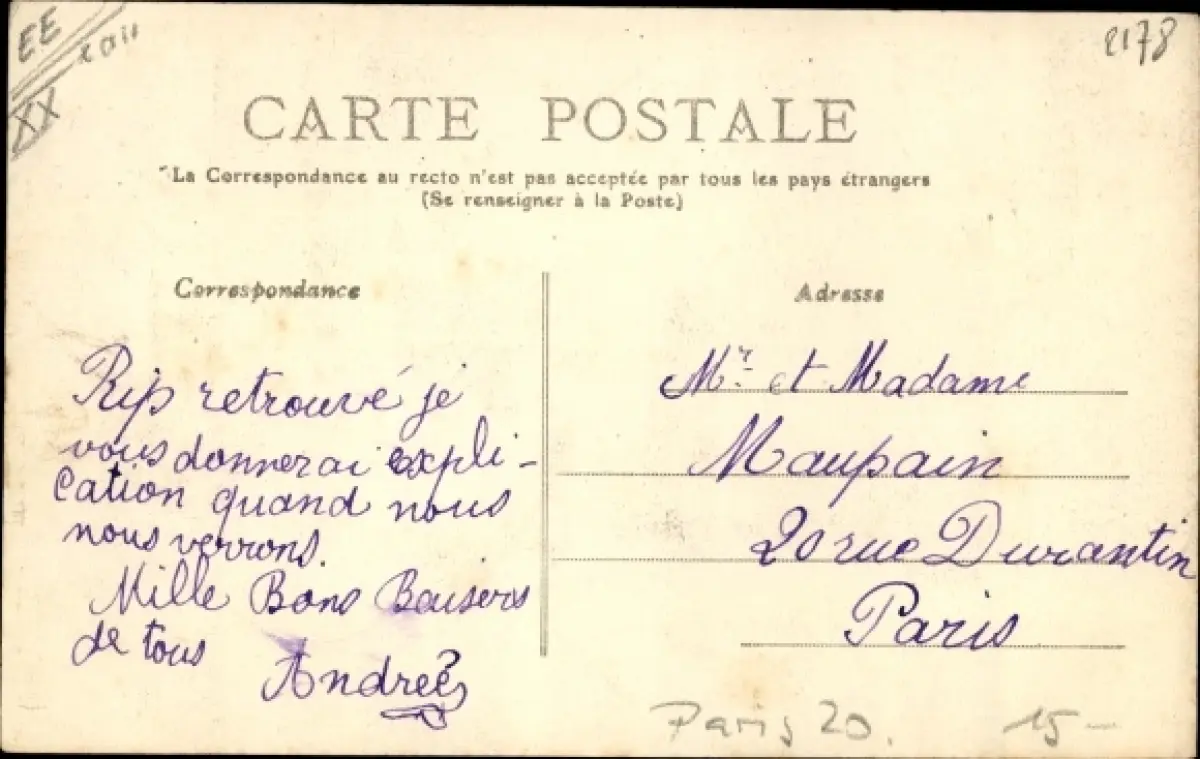 EE
XX
2178
CARTE POSTALE
La Correspondance au recto n'est pas acceptée par tous les pays étrangers
(Se renseigner à la Poste)
Correspondance
Rip retrouvé je
vous donnerai expli-
cation quand nous
nous verrons.
Mille Bons Baisers
de tous
Andrée
Adresse
Mr. et Madame
Maupain
20 rue Durantin
Paris
Paris 20.
15-